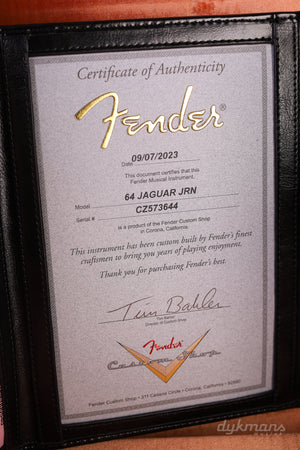 Certificate of Authenticity
Fender®
Date 09/07/2023
This document certifies that this
Fender Musical Instrument,
Model 64 JAGUAR JRN
Serial # CZ573644
is a product of the Fender Custom Shop
in Corona, California.
This instrument has been custom built by Fender's finest
craftsmen to bring you years of playing enjoyment.
Thank you for purchasing Fender's best.
Tim Bahler
Director of Custom Shop
Fender
Custom Shop
Fender Custom Shop • 311 Cessna Circle • Corona, California • 92880
dykmans